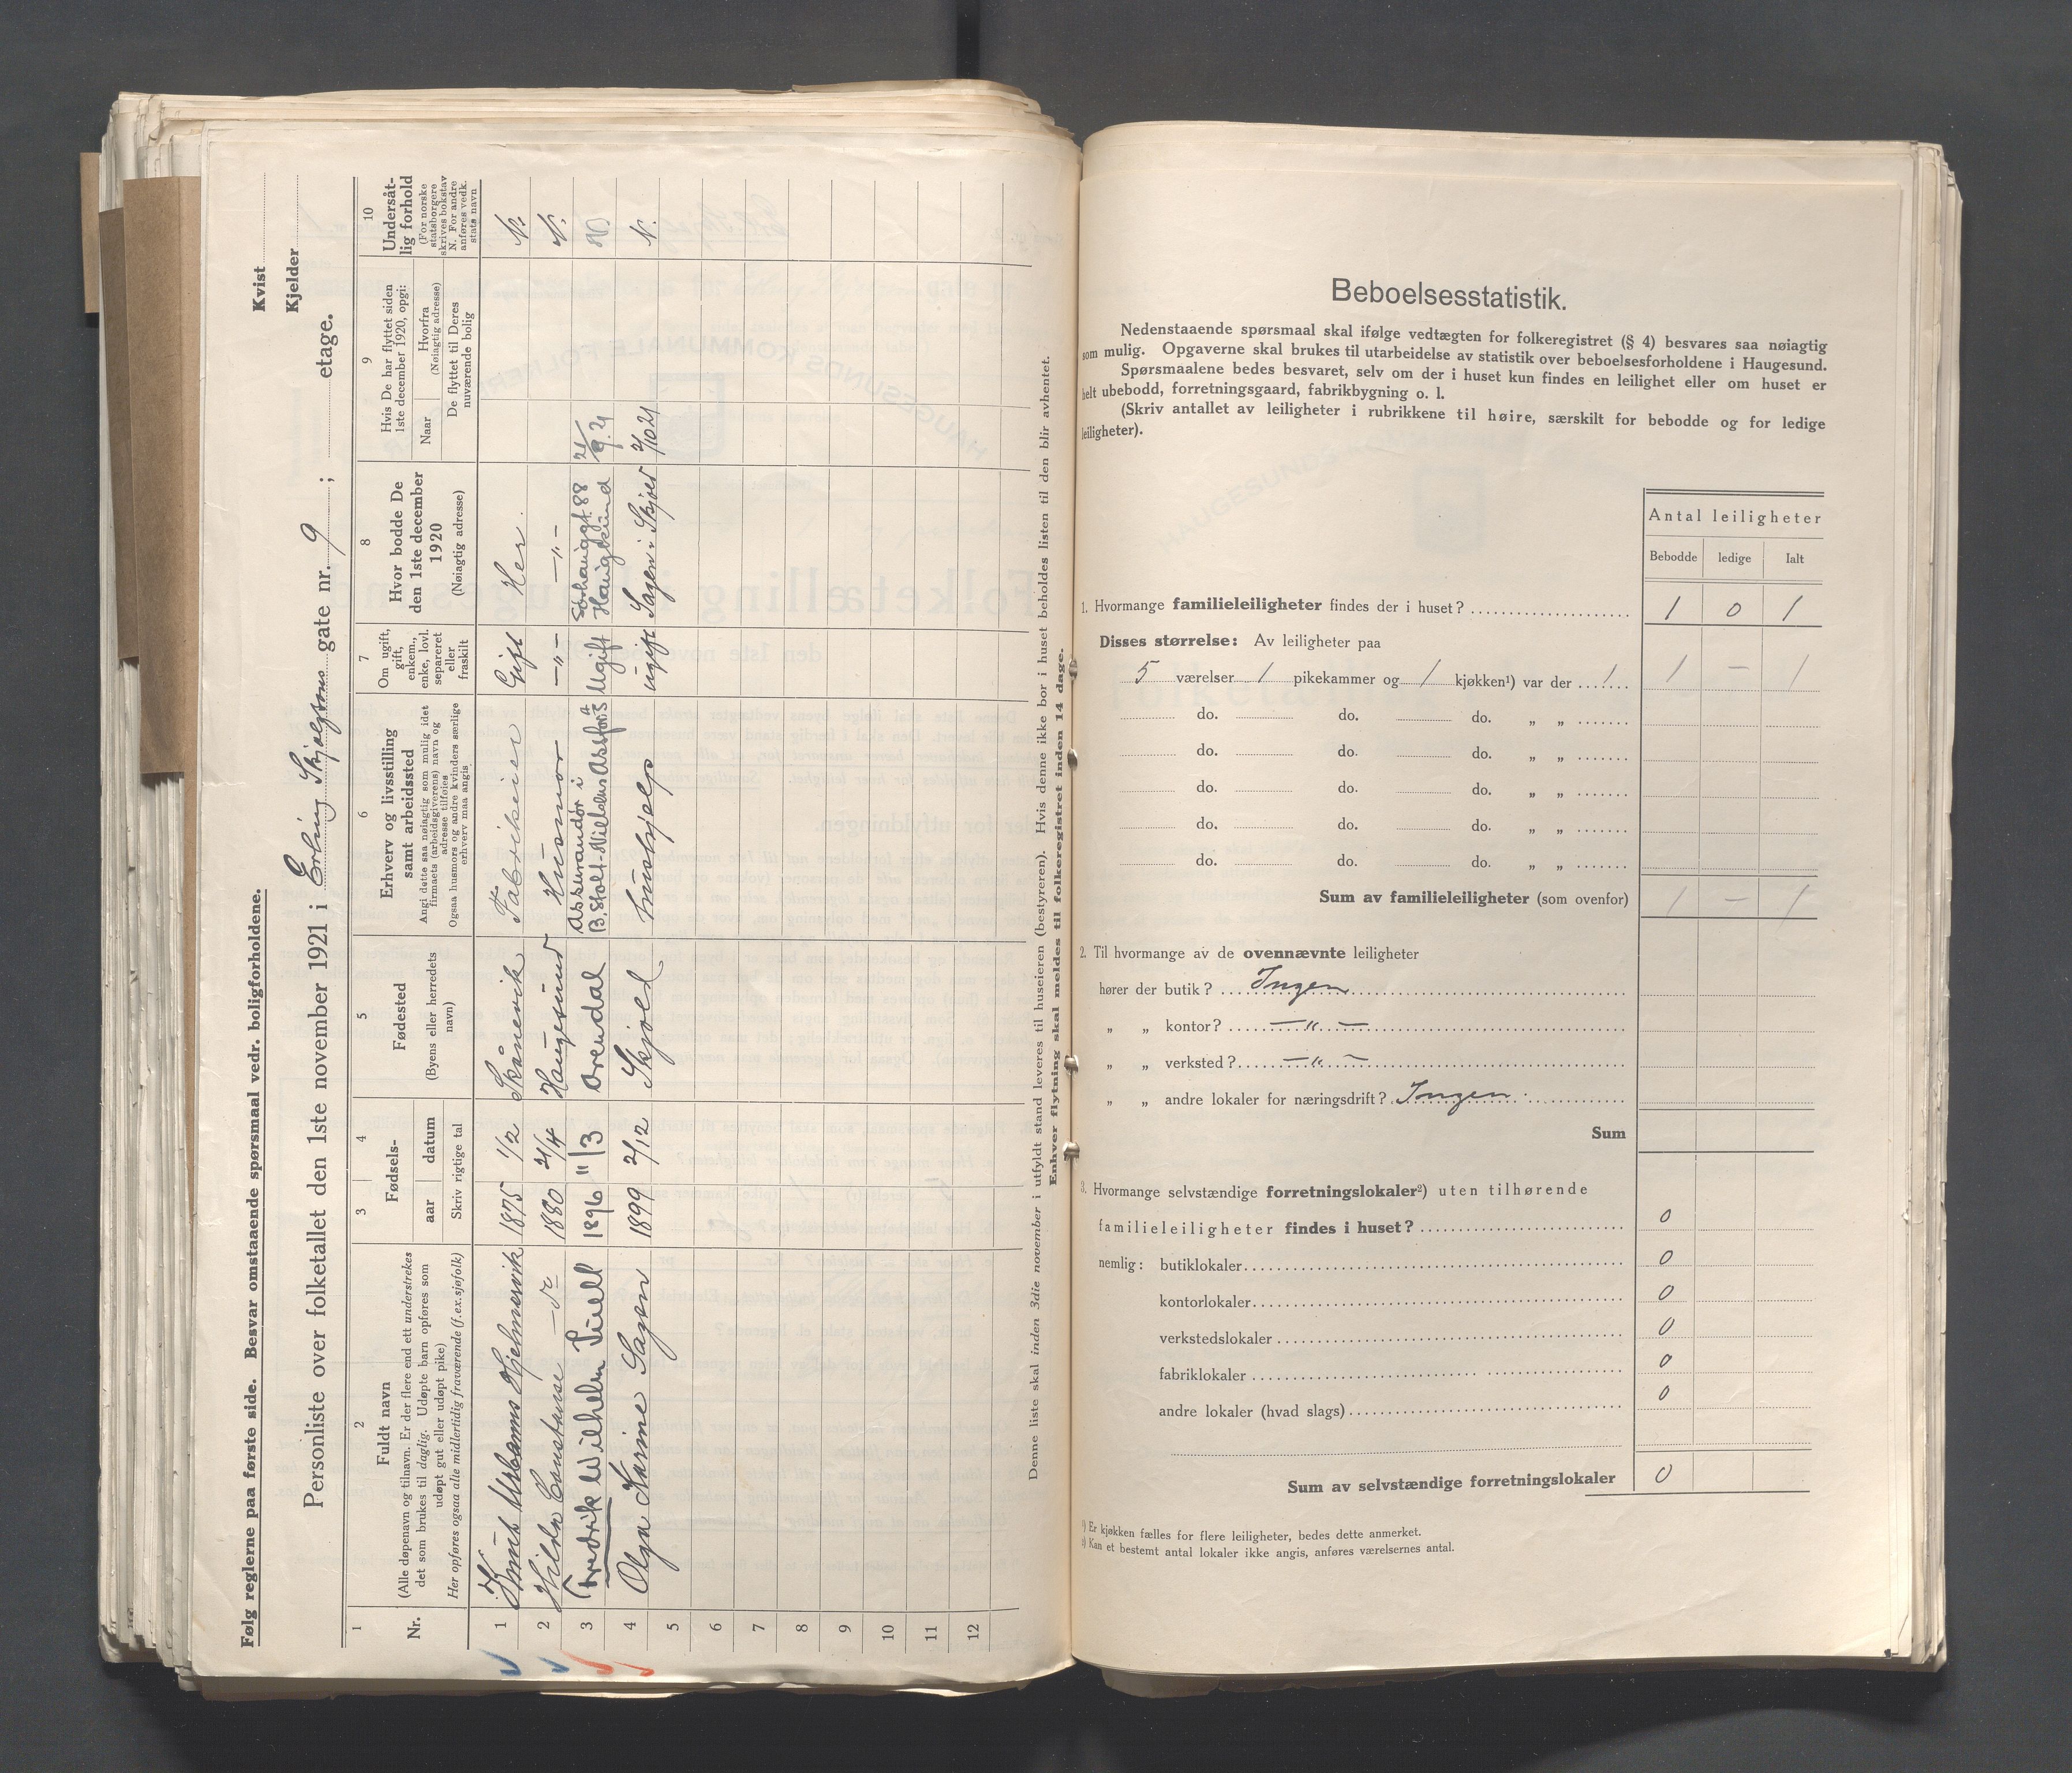 Følg reglerne paa første side. Besvar omstaaende spørsmaal vedr. boligforholdene.
Personliste over folketallet den 1ste november 1921 i Erling Skjalgsons gate nr. 9 ; etage.
Kvist
Kjelder
1 2 3 4 5 6 7 8 9 10
Nr.
Fuldt navn
(Alle døpenavn og tilnavn. Er der flere end ett understrekes
det som brukes til daglig. Udøpte barn opføres som
udøpt gut eller udøpt pike)
Her opføres ogsaa alle midlertidig fraværende (f. ex. sjøfolk)
Fødsels-
aar datum
Skriv rigtige tal
Fødested
(Byens eller herredets
navn)
Erhverv og livsstilling
samt arbeidssted
Angi dette saa nøiagtig som mulig idet
firmaets (arbeidsgiverens) navn og
adresse tilføies
Ogsaa husmors og andre kvinders særlige
erhverv maa angis
Om ugift,
gift,
enkem.,
enke, lovl.
separeret
eller
fraskilt
Hvor bodde De
den 1ste december
1920
(Nøiagtig adresse)
Hvis De har flyttet siden
1ste december 1920, opgi:
Naar
Hvorfra
(Nøiagtig adresse)
De flyttet til Deres
nuværende bolig
Undersåt-
lig forhold
(For norske
statsborgere
skrives bokstav
N. For andre
anføres vedk.
stats navn
1 Knut Urbanus Hjelmervik 1875 1/2 Skånevik Fabrikeier Gift Her. N.
2 Hilda Constanse — do 1880 21/4 Haugesund Husmor —"— —"— N.
3 Fredrik Wilhelm Tiell 1896 11/3 Arendal Assurandør i B. Stolt-Nielsens Assfors A/S Ugift Sørhauggt. 88 Haugesund 21/9.21 N
4 Olga Karine Sagen 1899 2/12 Skjold hushjelp ugift Sagen i Skjold 2/10 21 N.
5
6
7
8
9
10
11
12
Denne liste skal inden 3die november i utfyldt stand leveres til huseieren (bestyreren). Hvis denne ikke bor i huset beholdes listen til den blir avhentet.
Enhver flytning skal meldes til folkeregistret inden 14 dage.
Beboelsesstatistik.
Nedenstaaende spørsmaal skal ifølge vedtægten for folkeregistret (§ 4) besvares saa nøiagtig
som mulig. Opgaverne skal brukes til utarbeidelse av statistik over beboelsesforholdene i Haugesund.
Spørsmaalene bedes besvaret, selv om der i huset kun findes en leilighet eller om huset er
helt ubebodd, forretningsgaard, fabrikbygning o. l.
(Skriv antallet av leiligheter i rubrikkene til høire, særskilt for bebodde og for ledige
leiligheter).
Antal leiligheter
Bebodde ledige Ialt
1. Hvormange familieleiligheter findes der i huset? 1 0 1
Disses størrelse: Av leiligheter paa
5 værelser 1 pikekammer og 1 kjøkken¹) var der 1 1 — 1
do. do. do. „ „
do. do. do. „ „
do. do. do. „ „
do. do. do. „ „
do. do. do. „ „
Sum av familieleiligheter (som ovenfor) 1 — 1
2. Til hvormange av de ovennævnte leiligheter
hører der butik? Ingen
„ „ kontor? —"—
„ „ verksted? —"—
„ „ andre lokaler for næringsdrift? Ingen
Sum
3. Hvormange selvstændige forretningslokaler²) uten tilhørende
familieleiligheter findes i huset? 0
nemlig: butiklokaler 0
kontorlokaler 0
verkstedslokaler 0
fabriklokaler 0
andre lokaler (hvad slags) 0
Sum av selvstændige forretningslokaler 0
¹) Er kjøkken fælles for flere leiligheter, bedes dette anmerket.
²) Kan et bestemt antal lokaler ikke angis, anføres værelsernes antal.